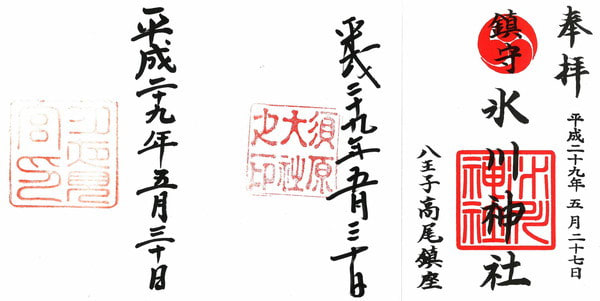 奉拝
平成二十九年 五月二十七日
鎮守
氷川神社
八王子高尾鎮座
平成二十九年五月三十日
須原
大社
之印
平成二十九年五月三十日